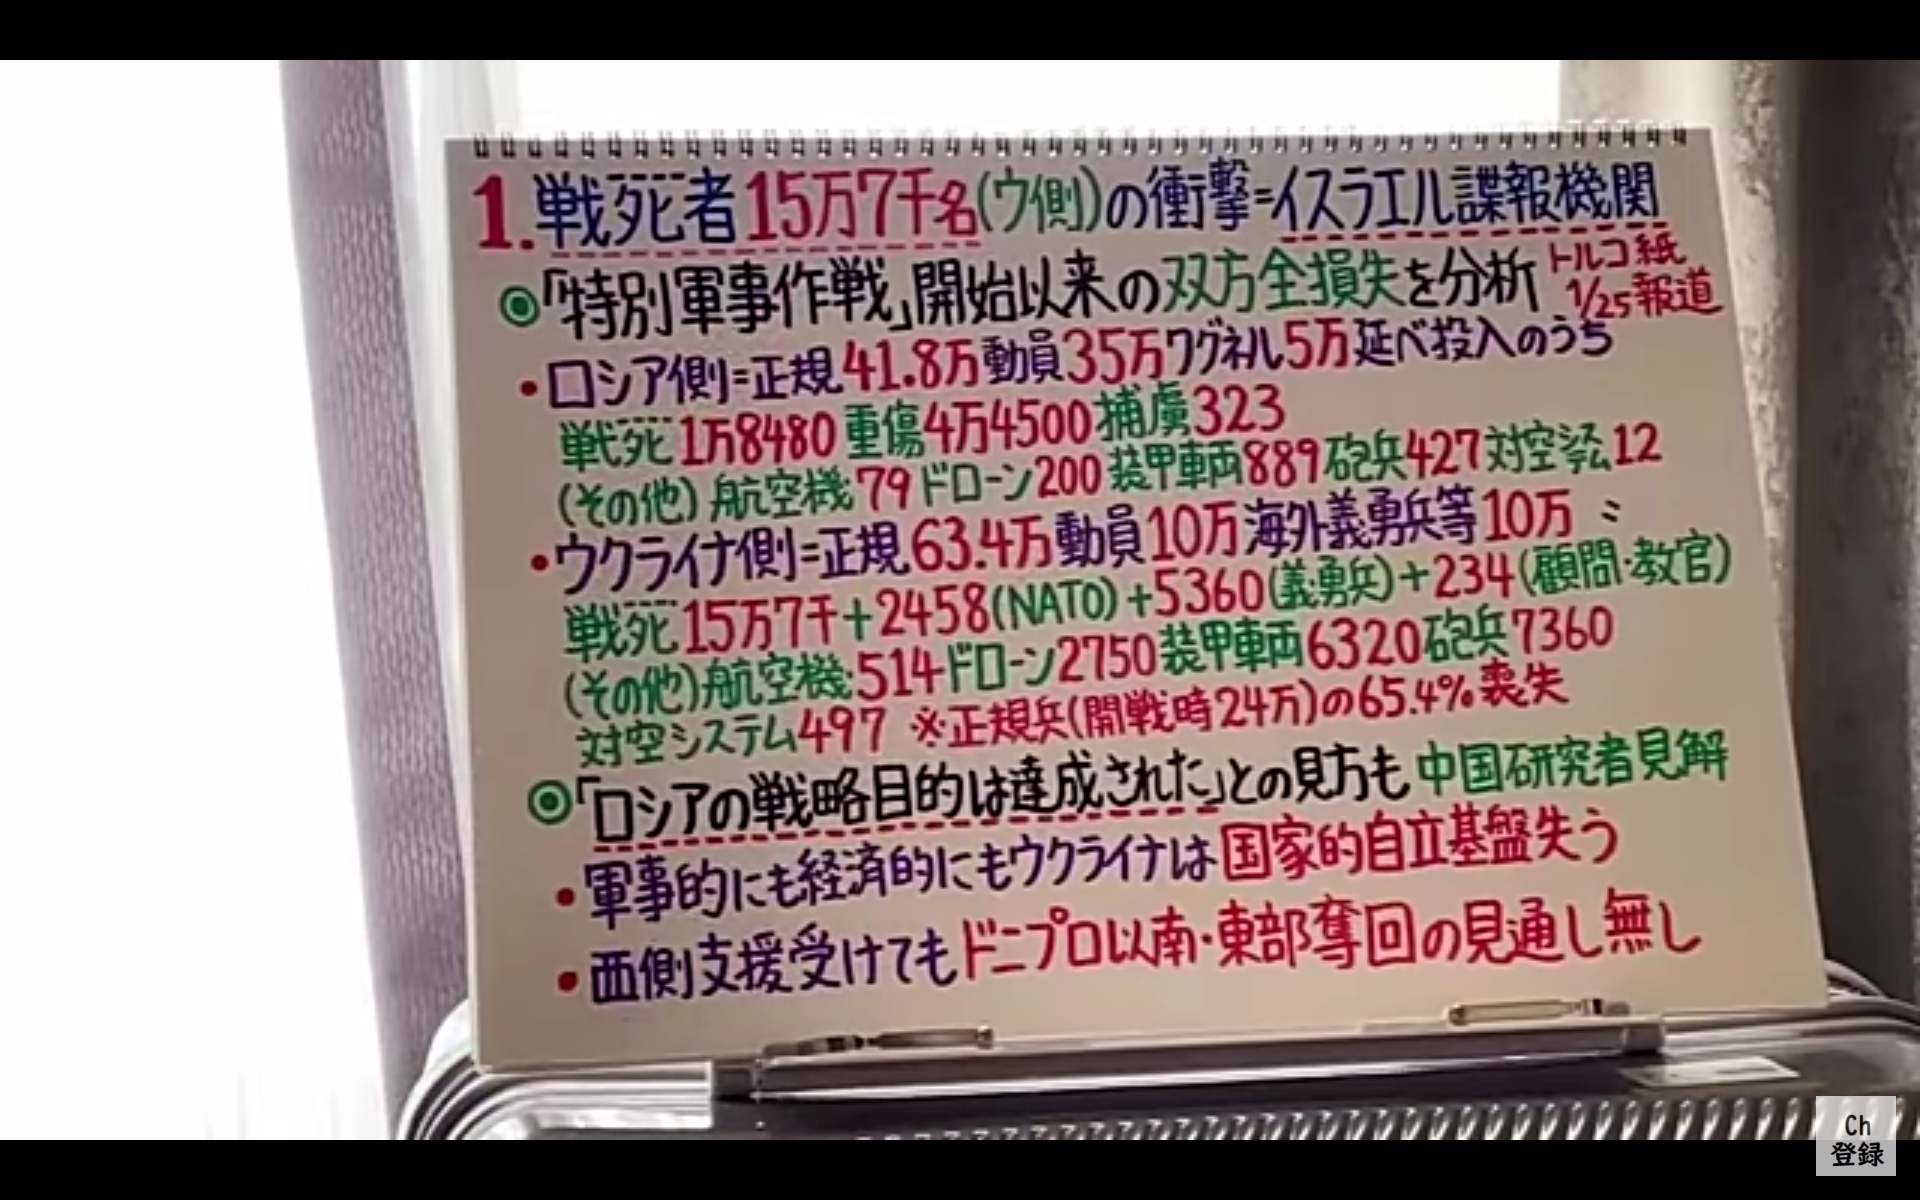 1.戦死者15万7千名(ウ側)の衝撃=イスラエル諜報機関
◎「特別軍事作戦」開始以来の双方全損失を分析 トルコ紙
1/25報道
・ロシア側=正規41.8万動員35万ワグネル5万延べ投入のうち
戦死1万8480重傷4万4500捕虜323
(その他)航空機79ドローン200装甲車両889砲兵427対空システム12
・ウクライナ側=正規63.4万動員10万海外義勇兵等10万〃
戦死15万7千+2458(NATO)+5360(義勇兵)+234(顧問・教官)
(その他)航空機514ドローン2750装甲車両6320砲兵7360
対空システム497 ※正規兵(開戦時24万)の65.4%喪失
◎「ロシアの戦略目的は達成された」との見方も 中国研究者見解
・軍事的にも経済的にもウクライナは国家的自立基盤失う
・西側支援受けてもドニプロ以南・東部奪回の見通し無し
Ch
登録